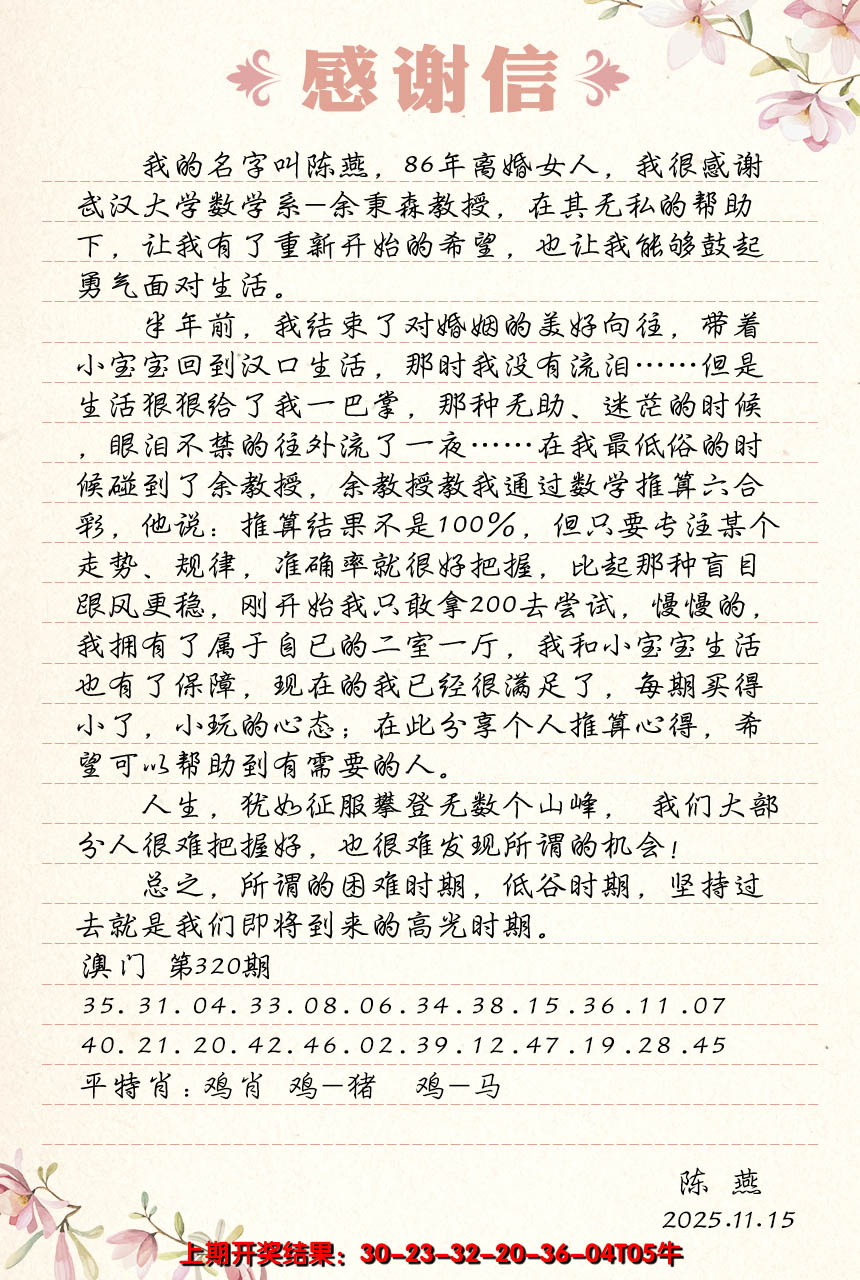 感谢信
我的名字叫陈燕，86年离婚女人，我很感谢
武汉大学数学系—余秉森教授，在其无私的帮助
下，让我有了重新开始的希望，也让我能够鼓起
勇气面对生活。
半年前，我结束了对婚姻的美好向往，带着
小宝宝回到汉口生活，那时我没有流泪……但是
生活狠狠给了我一巴掌，那种无助、迷茫的时候
，眼泪不禁的往外流了一夜……在我最低俗的时
候碰到了余教授，余教授教我通过数学推算六合
彩，他说：推算结果不是100%，但只要专注某个
走势、规律，准确率就很好把握，比起那种盲目
跟风更稳，刚开始我只敢拿200去尝试，慢慢的，
我拥有了属于自己的二室一厅，我和小宝宝生活
也有了保障，现在的我已经很满足了，每期买得
小了，小玩的心态；在此分享个人推算心得，希
望可以帮助到有需要的人。
人生，犹如征服攀登无数个山峰， 我们大部
分人很难把握好，也很难发现所谓的机会！
总之，所谓的困难时期，低谷时期，坚持过
去就是我们即将到来的高光时期。
澳门 第320期
35.31.04.33.08.06.34.38.15.36.11.07
40.21.20.42.46.02.39.12.47.19.28.45
平特肖：鸡肖 鸡—猪 鸡—马
陈 燕
2025.11.15
上期开奖结果：30-23-32-20-36-04T05牛